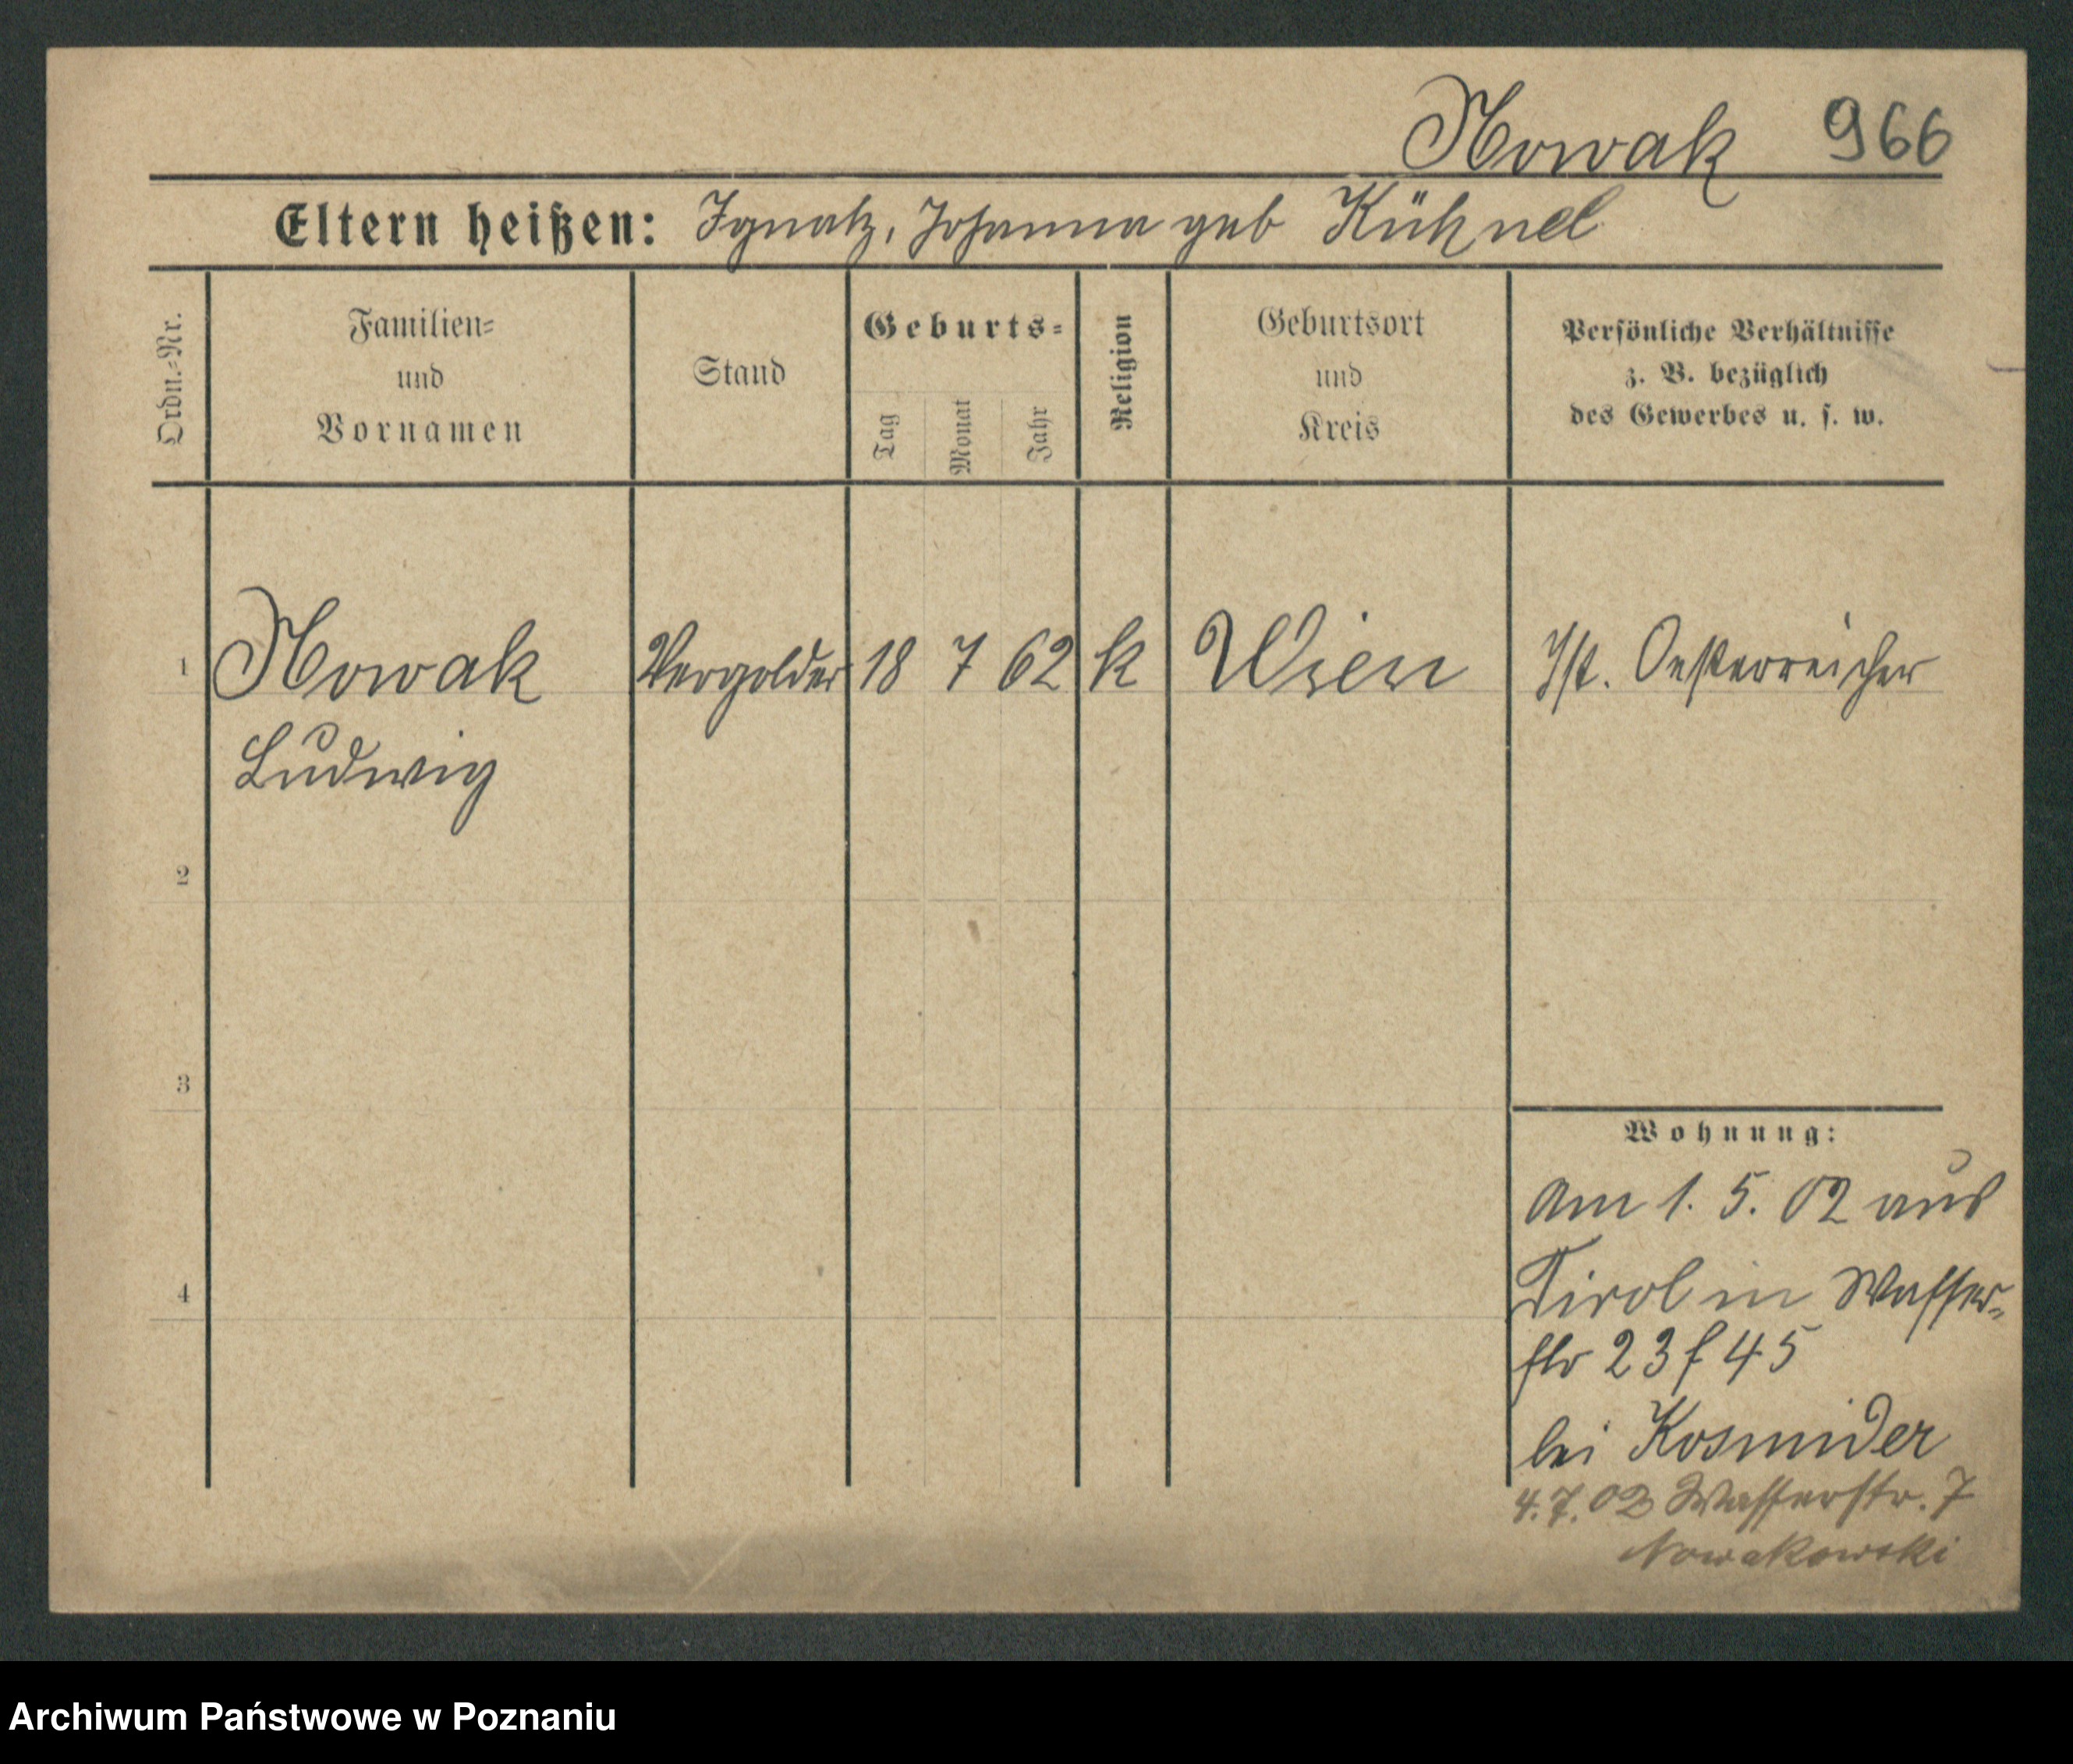 Nowak 966
Eltern heißen: Ignatz, Johanna geb Kühnel
Ordn.=Nr.
Familien=
und
Vornamen
Stand
Geburts=
Tag
Monat
Jahr
Religion
Geburtsort
und
Kreis
Persönliche Verhältnisse
z. B. bezüglich
des Gewerbes u. s. w.
1 Nowak Vergolder 18 7 62 k Wien Ist. Oesterreicher
Ludwig
2
3
4
Wohnung:
Am 1. 5. 02 aus
Tirol in Wasser=
str 23 f 45
bei Kosmider
4.7.02 Wasserstr. 7
Nowakowski
Archiwum Państwowe w Poznaniu